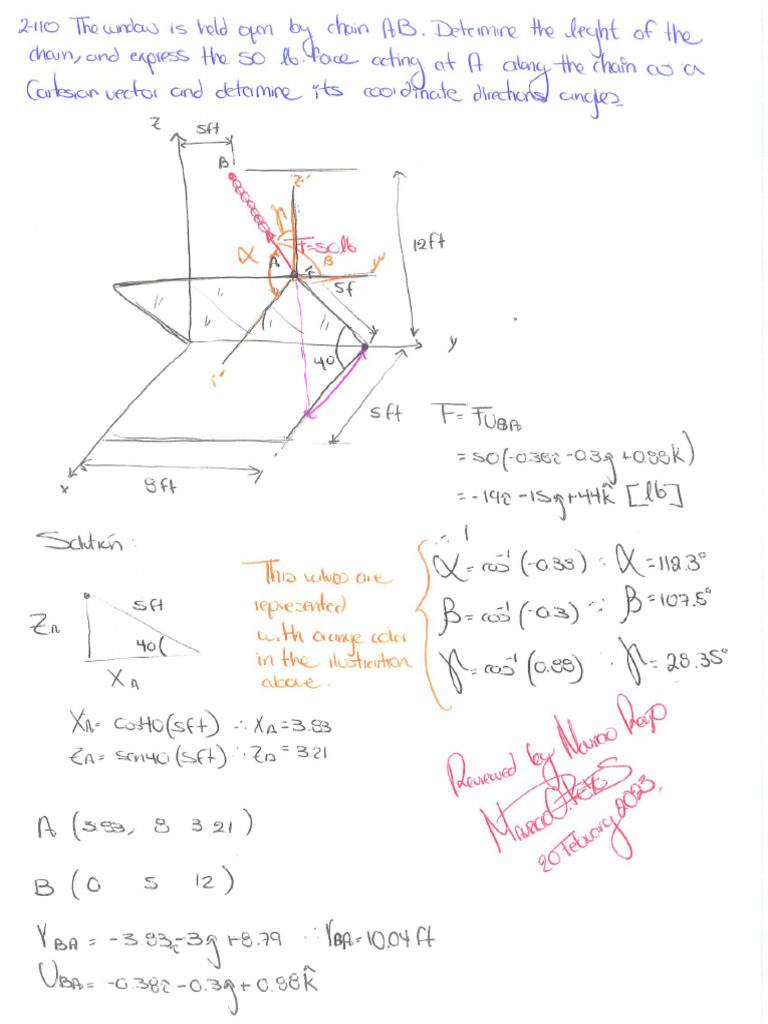 2-110 The window is held open by chain AB. Determine the leght of the
chain, and express the 50 lb. force acting at A along the chain as a
Cartesian vector and determine its coordinate directional angles.
z
5ft
B
z'
γ
F=50lb
α
A
β
y'
12ft
5f
40
y
5ft
x
8ft
F = FUBA
= 50(-0.38i -0.3j +0.88k)
= -19i -15j +44k [lb]
Solution:
5ft
ZA
40
XA
This values are
represented
with orange color
in the ilustration
above.
α = cos⁻¹(-0.38) ∴ α = 112.3°
β = cos⁻¹(-0.3) ∴ β = 107.5°
γ = cos⁻¹(0.88) ∴ γ = 28.35°
XA = cos40(5ft) ∴ XA = 3.83
ZA = sen40(5ft) ∴ ZA = 3.21
Reviewed by
20 February 2023.
A (3.83, 8 3.21)
B (0 5 12)
rBA = -3.83i -3j +8.79 ∴ rBA = 10.04 ft
UBA = -0.38i -0.3j + 0.88k